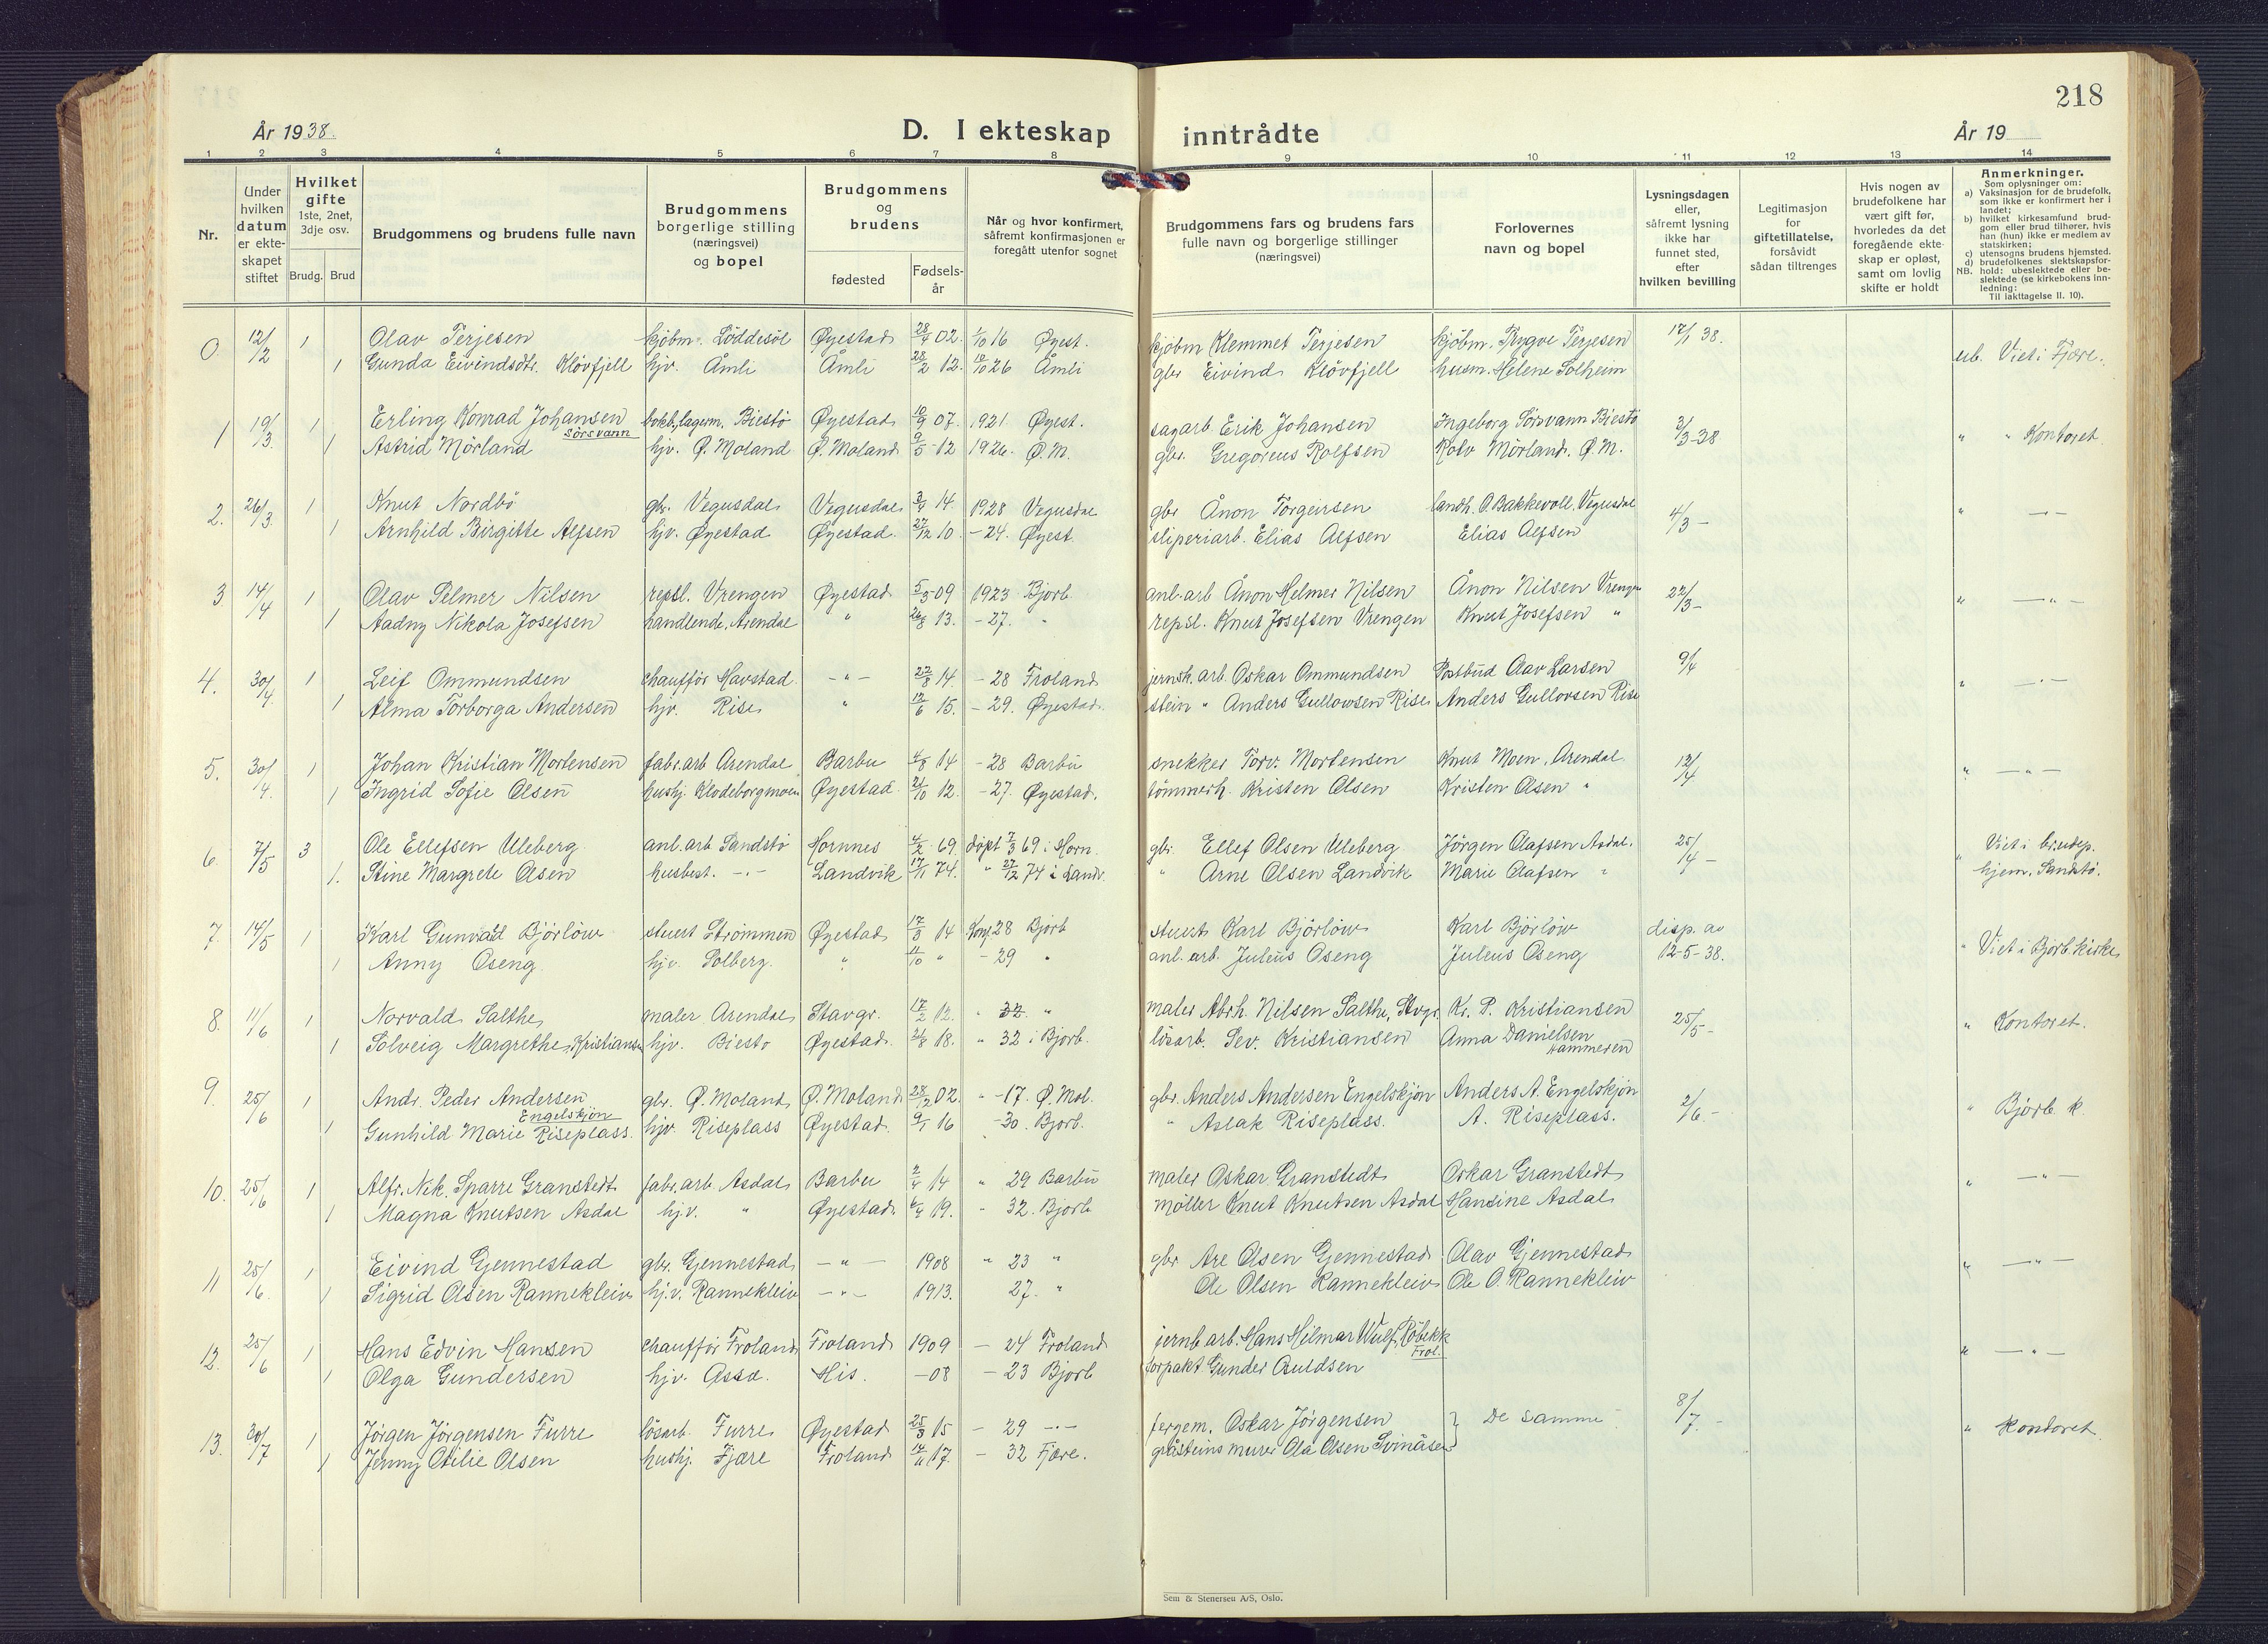 218
År 1938.
D. I ekteskap inntrådte
År 19
1 2 3 4 5 6 7 8 9 10 11 12 13 14
Nr.
Under hvilken datum er ekteskapet stiftet
Hvilket gifte 1ste, 2net, 3dje osv.
Brudg. Brud
Brudgommens og brudens fulle navn
Brudgommens borgerlige stilling (næringsvei) og bopel
Brudgommens og brudens
fødested
Fødsels-år
Når og hvor konfirmert, såfremt konfirmasjonen er foregått utenfor sognet
Brudgommens fars og brudens fars fulle navn og borgerlige stillinger (næringsvei)
Forlovernes navn og bopel
Lysningsdagen eller, såfremt lysning ikke har funnet sted, efter hvilken bevilling
Legitimasjon for giftetillatelse, forsåvidt sådan tiltrenges
Hvis nogen av brudefolkene har vært gift før, hvorledes da det foregående ekteskap er opløst, samt om lovlig skifte er holdt
Anmerkninger.
Som oplysninger om:
a) Vaksinasjon for de brudefolk, som ikke er konfirmert her i landet;
b) hvilket kirkesamfund brudgom eller brud tilhører, hvis han (hun) ikke er medlem av statskirken;
c) utensogns brudens hjemsted.
d) brudefolkenes slektskapsforhold: ubeslektede eller beslektede (se kirkebokens innledning:
NB. Til iakttagelse II. 10).
0 12/2 1 Olav Terjesen kjøbm. Løddesøl Øyestad 28/4 02. 1/10 16 Øyest. kjøbm Klemmet Terjesen kjøbm. Trygve Terjesen 17/1 38. ub. Viet i Fjære.
1 Gunda Eivindsdtr. Kløvfjell hjv. Åmli Åmli 28/2 12. 10/10 26 Åmli gbr Eivind Kløvfjell husm. Helene Solheim
1 19/3. 1 Erling Konrad Johansen Sørsvann bokb, lagerm. Biestø Øyestad 10/9 07. 1921. Øyest. sagarb. Erik Johansen Ingeborg Sørsvann Biestø 3/3-38 " " Kontoret.
1 Astrid Mørland hjv. Ø. Moland Ø. Moland 9/5-12 1926. Ø.M. gbr. Gregorius Rolfsen Rolv Mørland. Ø.M.
2. 26/3. 1 Knut Nordbø gbr. Vegusdal Vegusdal 3/4 14. 1928 Vegusdal gbr Ånon Torgeirsen landh. O. Bakkevoll, Vegusdal 4/3 - " -"-
1 Arnhild Birgitte Alfsen hjv. Øyestad Øyestad. 27/12 10. -24. Øyest. sliperiarb. Elias Alfsen Elias Alfsen
3 14/4 1 Olav Selmer Nilsen repsl. Vrengen Øyestad 5/5 09 1923 Bjorb anl.arb Ånon Helmer Nilsen Ånon Nilsen Vrengen 22/3 - " -"-
1 Aadny Nikola Josefsen handlende, Arendal " 26/8 13. -27. " repsl. Knut Josefsen Vrengen Knut Josefsen "
4. 30/4. 1 Leif Ommundsen chauffør Havstad -"- 22/8 14 -28 Froland jernsk. arb. Oskar Ommundsen Postbud Olav Larsen 9/4 " -"-
1 Alma Torborga Andersen hjv. Rise " 12/6 15. -29. Øyestad. stein " Anders Gullowsen Rise Anders Gullovsen Rise
5. 30/4. 1 Johan Kristian Mortensen fabr.arb Arendal Barbu 4/8 14 -28 Barbu snekker Torv. Mortensen Knut Moen, Arendal 12/4 " -"-
1 Ingrid Sofie Olsen hushj. Klodeborgmoen Øyestad. 21/10 12. -27. Øyestad. tømmerh. Kristen Olsen Kristen Olsen "
6. 7/5 3 Ole Ellefsen Uleberg anl.arb Sandstø Hornnes 4/2 69. døpt 7/3 69 i Horn. gbr. Ellef Olsen Uleberg Jørgen Olafsen Asdal. 25/4 - " Viet i brudep.
1. Stine Margrete Olsen husbest. -"- Landvik 17/11 74. " 27/12 74 i Landv. " Arne Olsen Landvik Marie Olafsen " hjem. Sandstø.
7. 14/5 1 Karl Gunvald Bjørløw stuert Strømmen Øyestad 17/3 14 Konf. 28 Bjorb stuert Karl Bjørløw Karl Bjørløw disp. av " Viet i Bjorb. kirke
1 Anny Oseng hjv. Solberg. " 11/10 " -29 " anl. arb. Juleus Oseng Juleus Oseng 12-5-38.
8. 11/6 1 Norvald Salthe maler Arendal Stavgr. 17/2 12. " 32 " maler Abrh. Nilsen Salthe, Stvgr. Kr. P. Kristiansen 25/5 - " Kontoret.
1 Solveig Margrethe Kristiansen hjv. Biestø Øyestad. 21/8 18. " 32 i Bjorb. løsarb. Sev. Kristiansen Anna Danielsen Hammeren
9. 25/6 1 Andr. Peder Andersen Engelskjøn gbr. Ø. Moland Ø. Moland 28/12 02. " -17. Ø. Mol. gbr. Anders Andersen Engelskjøn Anders A. Engelskjøn 2/6 - " Bjorb. k.
1 Gunhild Marie Riseplass. hjv. Riseplass Øyestad. 9/1 16 -30. Bjorb. " Aslak Riseplass. A. Riseplass.
10. 25/6 1 Alfr. Nik. Sparre Granstedt fabr.arb Asdal Barbu 2/4 14 " 29 Barbu maler Oskar Granstedt Oskar Granstedt " -"-
1 Magna Knutsen Asdal hj.v. " Øyestad. 6/4 19. " 32. Bjorb møller Knut Knutsen Asdal Hansine Asdal
11 25/6. 1 Eivind Gjennestad gbr. Gjennestad -"- 1908 " 23 " gbr Are Olsen Gjennestad Olav Gjennestad " -"-
1 Sigrid Olsen Rannekleiv hj.v. Rannekleiv -"- 1913. 27. " Ole Olsen Rannekleiv Ole O. Rannekleiv
12. 25/6 1 Hans Edvin Hansen chauffør Froland Froland 1909 - 24 Froland jernb arb. Hans Hilmar Wulf, Røbekk Frol. " -"-
1 Olga Gundersen hjv. His. -08 - 23 Bjorb forpakt Gunder Auldsen
13. 30/7 1 Jørgen Jørgensen Furre løsarb. Furre Øyestad 25/3 15 - 29 -"- fergem. Oskar Jørgensen } De samme 8/7. - " Kontoret.
1 Jenny Otilie Olsen hushj. Fjære Froland 17. - 32 Fjære. gråsteins murer Ola Olsen Svinåsen
Sem & Stenersen A/S, Oslo.